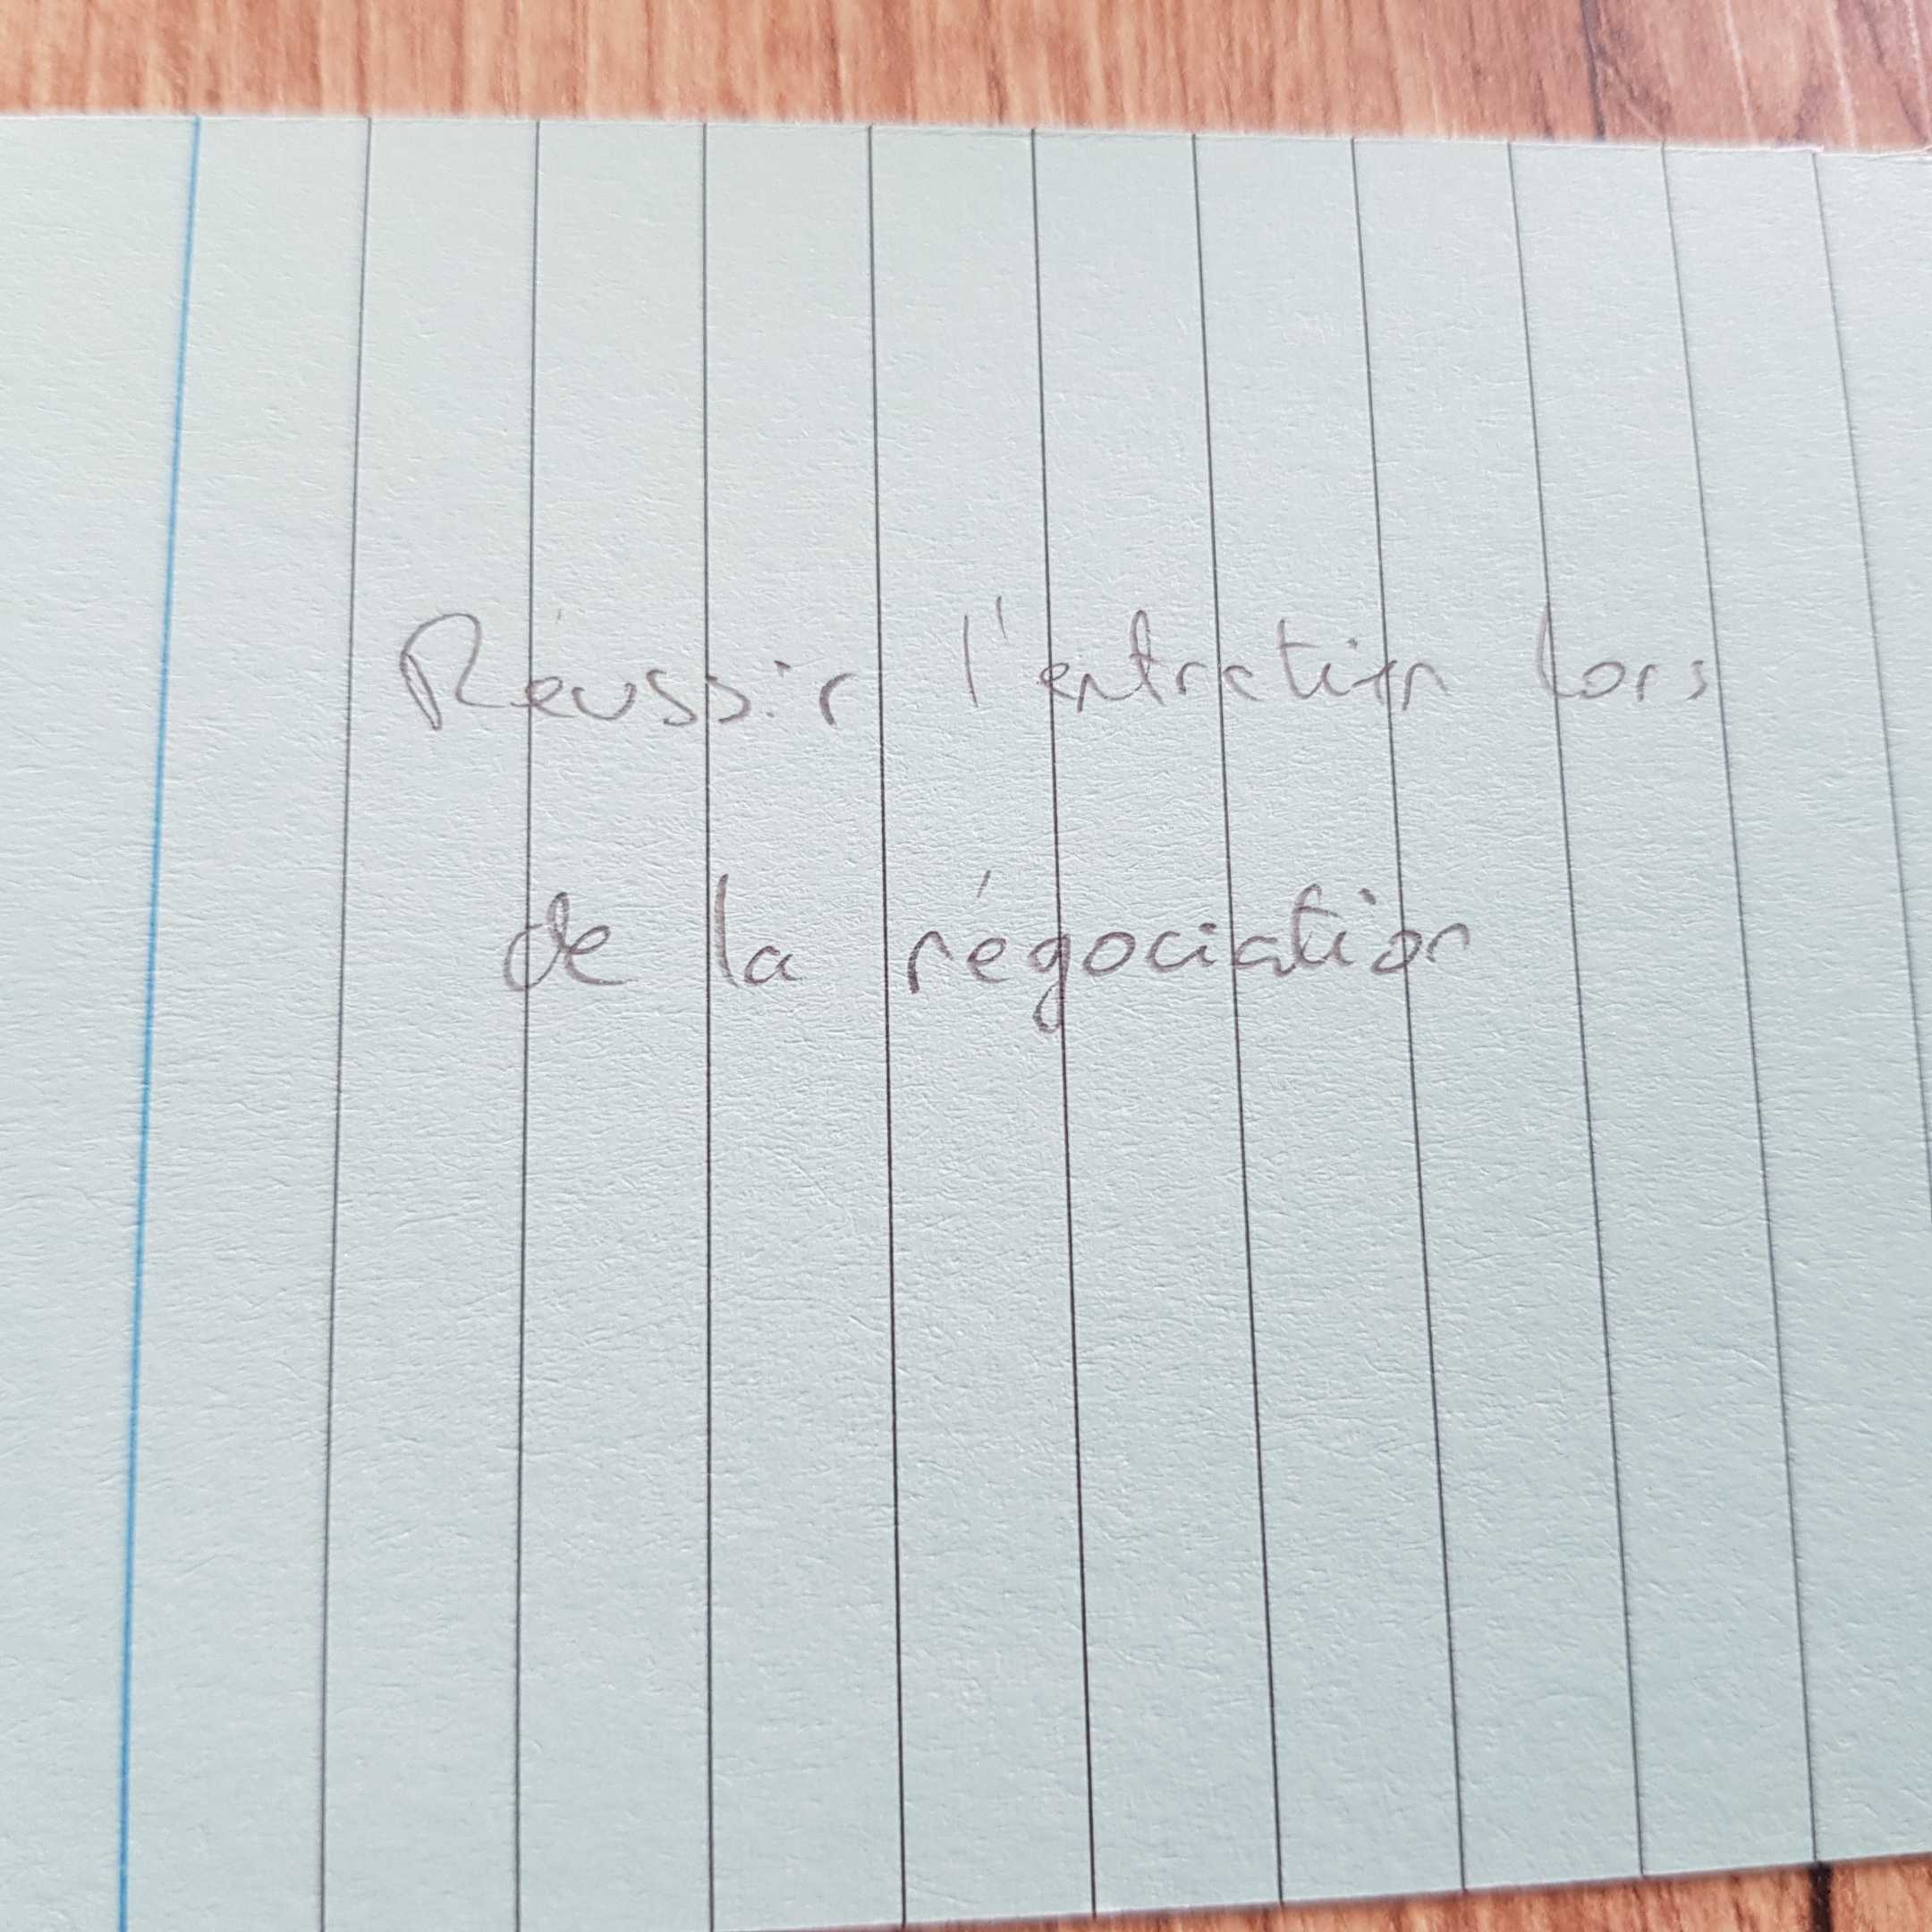 Réussir l'entraction lors
de la négociation